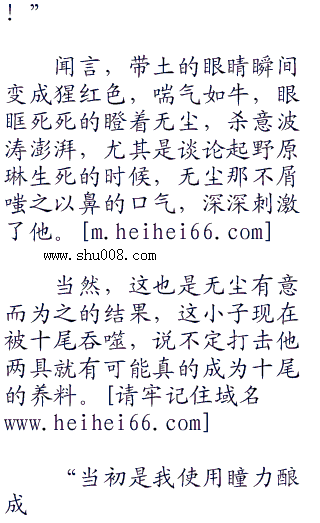 ！”
闻言，带土的眼睛瞬间
变成猩红色，喘气如牛，眼
眶死死的瞪着无尘，杀意波
涛澎湃，尤其是谈论起野原
琳生死的时候，无尘那不屑
嗤之以鼻的口气，深深刺激
了他。[m.heihei66.com]
www.shu008.com
当然，这也是无尘有意
而为之的结果，这小子现在
被十尾吞噬，说不定打击他
两具就有可能真的成为十尾
的养料。[请牢记住域名
www.heihei66.com]
“当初是我使用瞳力酿
成